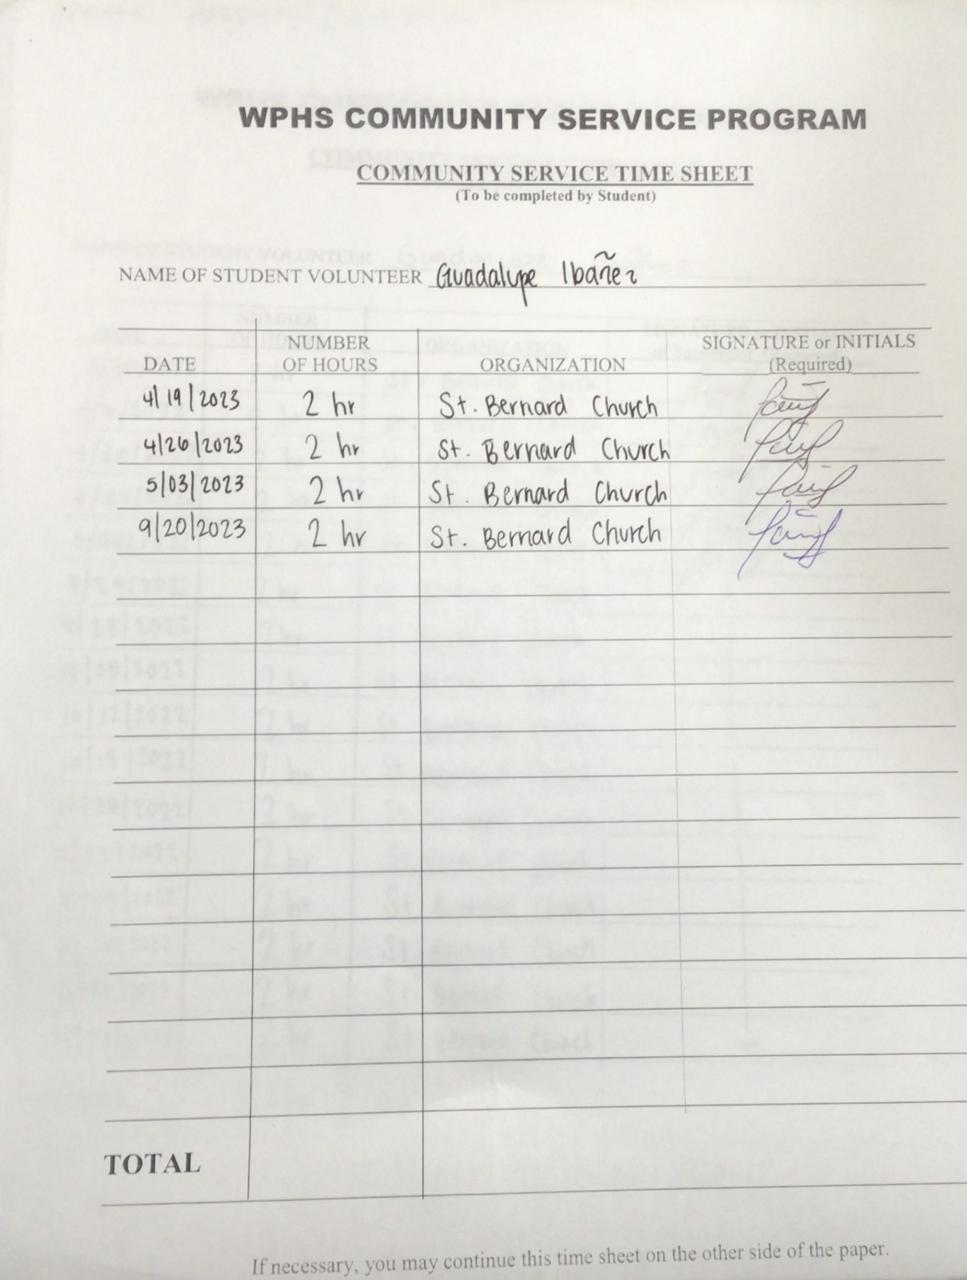 WPHS COMMUNITY SERVICE PROGRAM
COMMUNITY SERVICE TIME SHEET
(To be completed by Student)
NAME OF STUDENT VOLUNTEER Guadalupe Ibañez
DATE NUMBER OF HOURS ORGANIZATION SIGNATURE or INITIALS (Required)
4/19/2023 2 hr St. Bernard Church
4/26/2023 2 hr St. Bernard Church
5/03/2023 2 hr St. Bernard Church
9/20/2023 2 hr St. Bernard Church
TOTAL
If necessary, you may continue this time sheet on the other side of the paper.